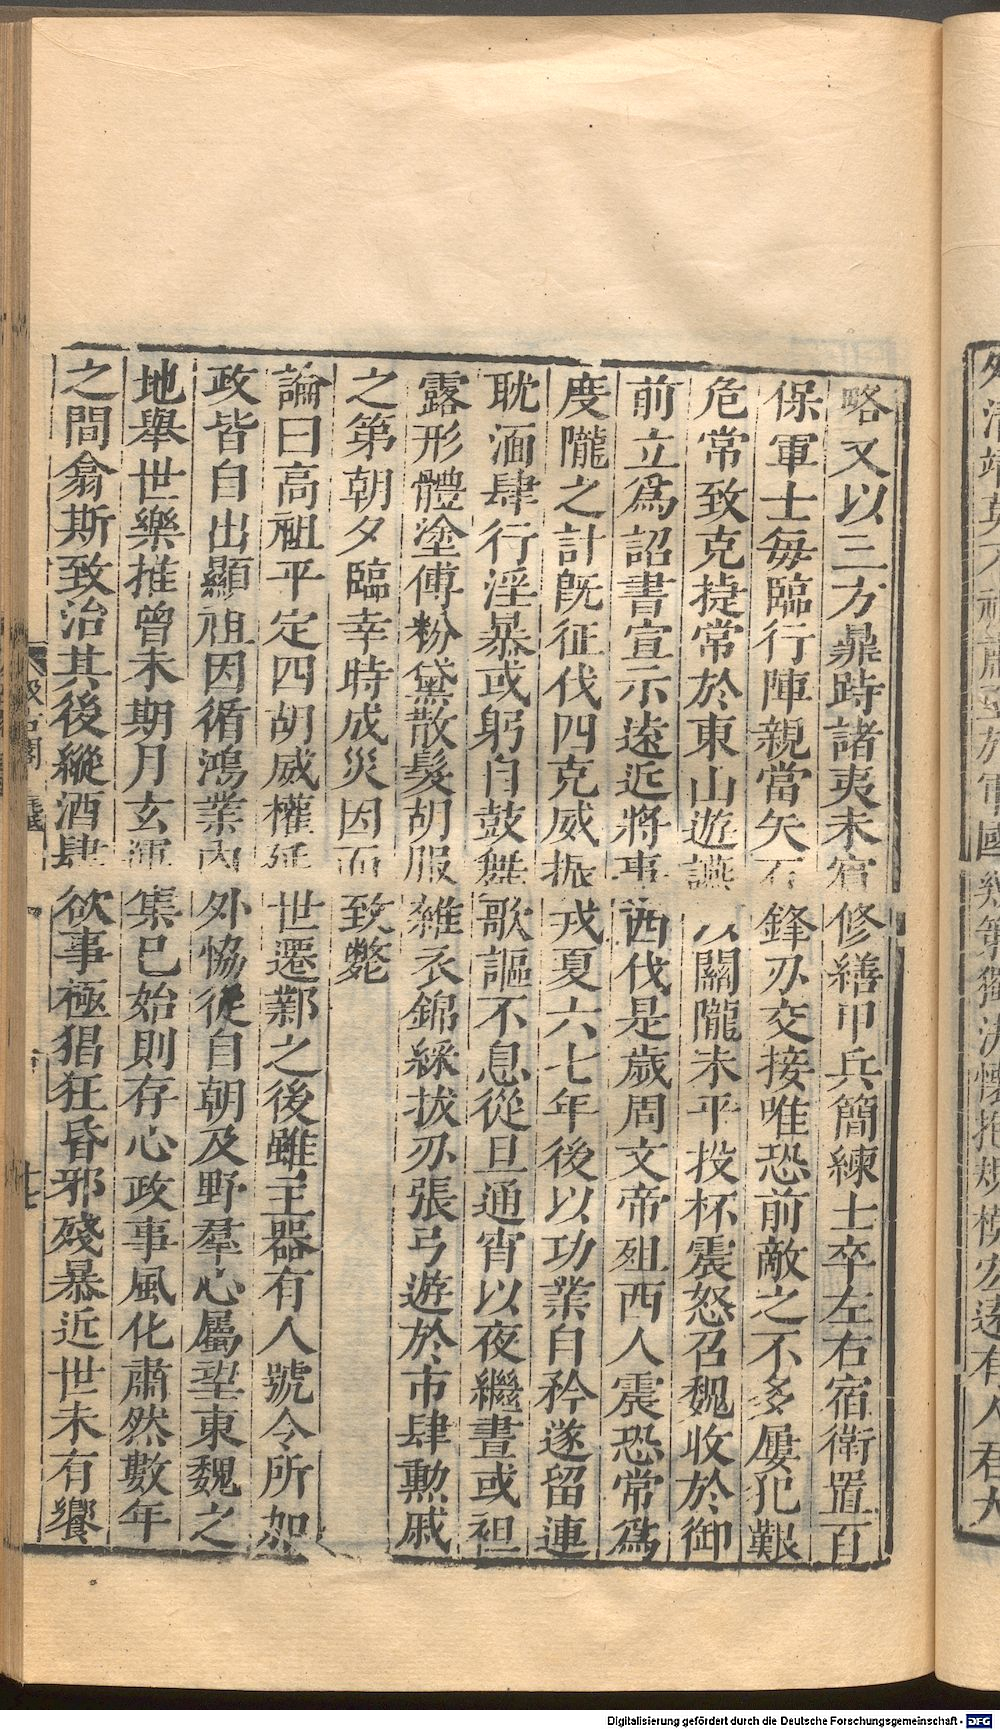 略又以三方鼎跱諸夷未賓修繕甲兵簡練士卒左右宿衛置百
保軍士每臨行陣親當矢石鋒刃交接唯恐前敵之不多屢犯艱
危常致克捷常於東山遊讌以關隴未平投杯震怒召魏收於御
前立爲詔書宣示遠近將事西伐是歲周文帝殂西人震恐常爲
度隴之計既征伐四克威振戎夏六七年後以功業自矜遂留連
耽湎肆行淫暴或躬自鼓舞歌謳不息從旦通宵以夜繼晝或袒
露形體塗傅粉黛散髮胡服雜衣錦綵拔刃張弓遊於市肆勳戚
之第朝夕臨幸時成災因而致斃
論曰高祖平定四胡威權延世遷鄴之後雖主器有人號令所加
政皆自出顯祖因循鴻業內外恊從自朝及野羣心屬望東魏之
地舉世樂推曾未期月玄運集已始則存心政事風化肅然數年
之間翕斯致治其後縱酒肆欲事極猖狂昏邪殘暴近世未有饗
汲古閣
十七
Digitalisierung gefördert durch die Deutsche Forschungsgemeinschaft - DFG